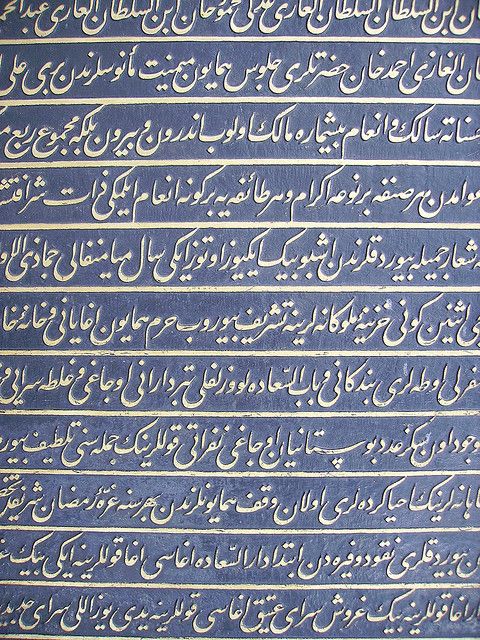 ان ابن السلطان السلطان الغازی محمود خان ابن السلطان الغازی عبدالحمید
ان الغازی احمد خان حضرتلری جلوس همایون میمنت مأنوسلرندن بری علی
حسناته سالك و انعام بیشماره مالك اولوب اندرون و بیرون بلکه مجموع ربع
عوامدن هر صنفه بر نوعه اکرام و هر طائفه یه بر کونه انعام ایلمکی ذات شرافت
شعار جمیله بیوردقلرندن اشبو بیك ایکیوز اوتوز ایکی سال میامنفالی جماذی الاو
اثنین کونی خزینه ملوکانه لرینه تشریف بیوروب حرم همایون اغایانی و خانه خا
سفرلی اوطه لری بندکانی و باب السعاده لو و زلفلی تبرداران اوجاغی و غلطه سرایی
وجود اون سکز عدد بوستانیان اوجاغی نفراتی قوللرینك جمله سنی تلطیف بیور
بانه لرینك احیا کرده لری اولان وقف همایونلرندن بهر سنه غره رمضان شریفده
بیوردقلری نقود وفیره دن ابتدا دار السعاده اغاسی اغا قوللرینه ایکی بیك
دار اغا قوللرینه بیك غروش سرای عتیق اغاسی قوللرینه یدی یوز اللی سرای جدید